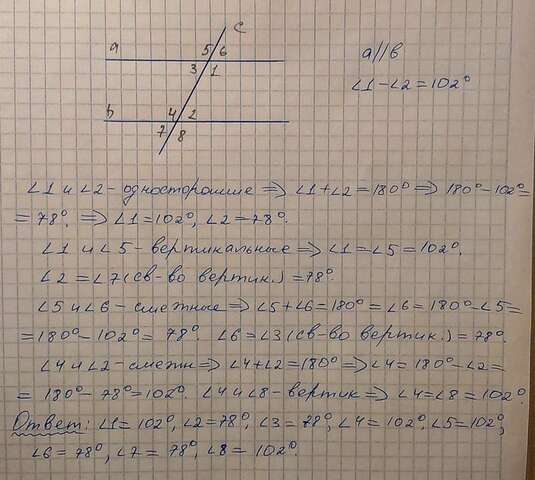 c
a 5 6 a//b
3 1
∠1-∠2=102°
b 4 2
7 8
∠1 и ∠2-односторонние ⇒ ∠1+∠2=180° ⇒ 180°-102°=
=78°. ⇒ ∠1=102°, ∠2=78°.
∠1 и ∠5-вертикальные ⇒ ∠1=∠5=102°.
∠2=∠7(св-во вертик.)=78°.
∠5 и ∠6-смежные ⇒ ∠5+∠6=180°=∠6=180°-∠5=
=180°-102°=78°. ∠6=∠3(св-во вертик.)=78°.
∠4 и ∠2-смежн ⇒ ∠4+∠2=180° ⇒ ∠4=180°-∠2=
=180°-78°=102°. ∠4 и ∠8-вертик ⇒ ∠4=∠8=102°.
Ответ: ∠1=102°, ∠2=78°, ∠3=78°, ∠4=102°, ∠5=102°,
∠6=78°, ∠7=78°, ∠8=102°.